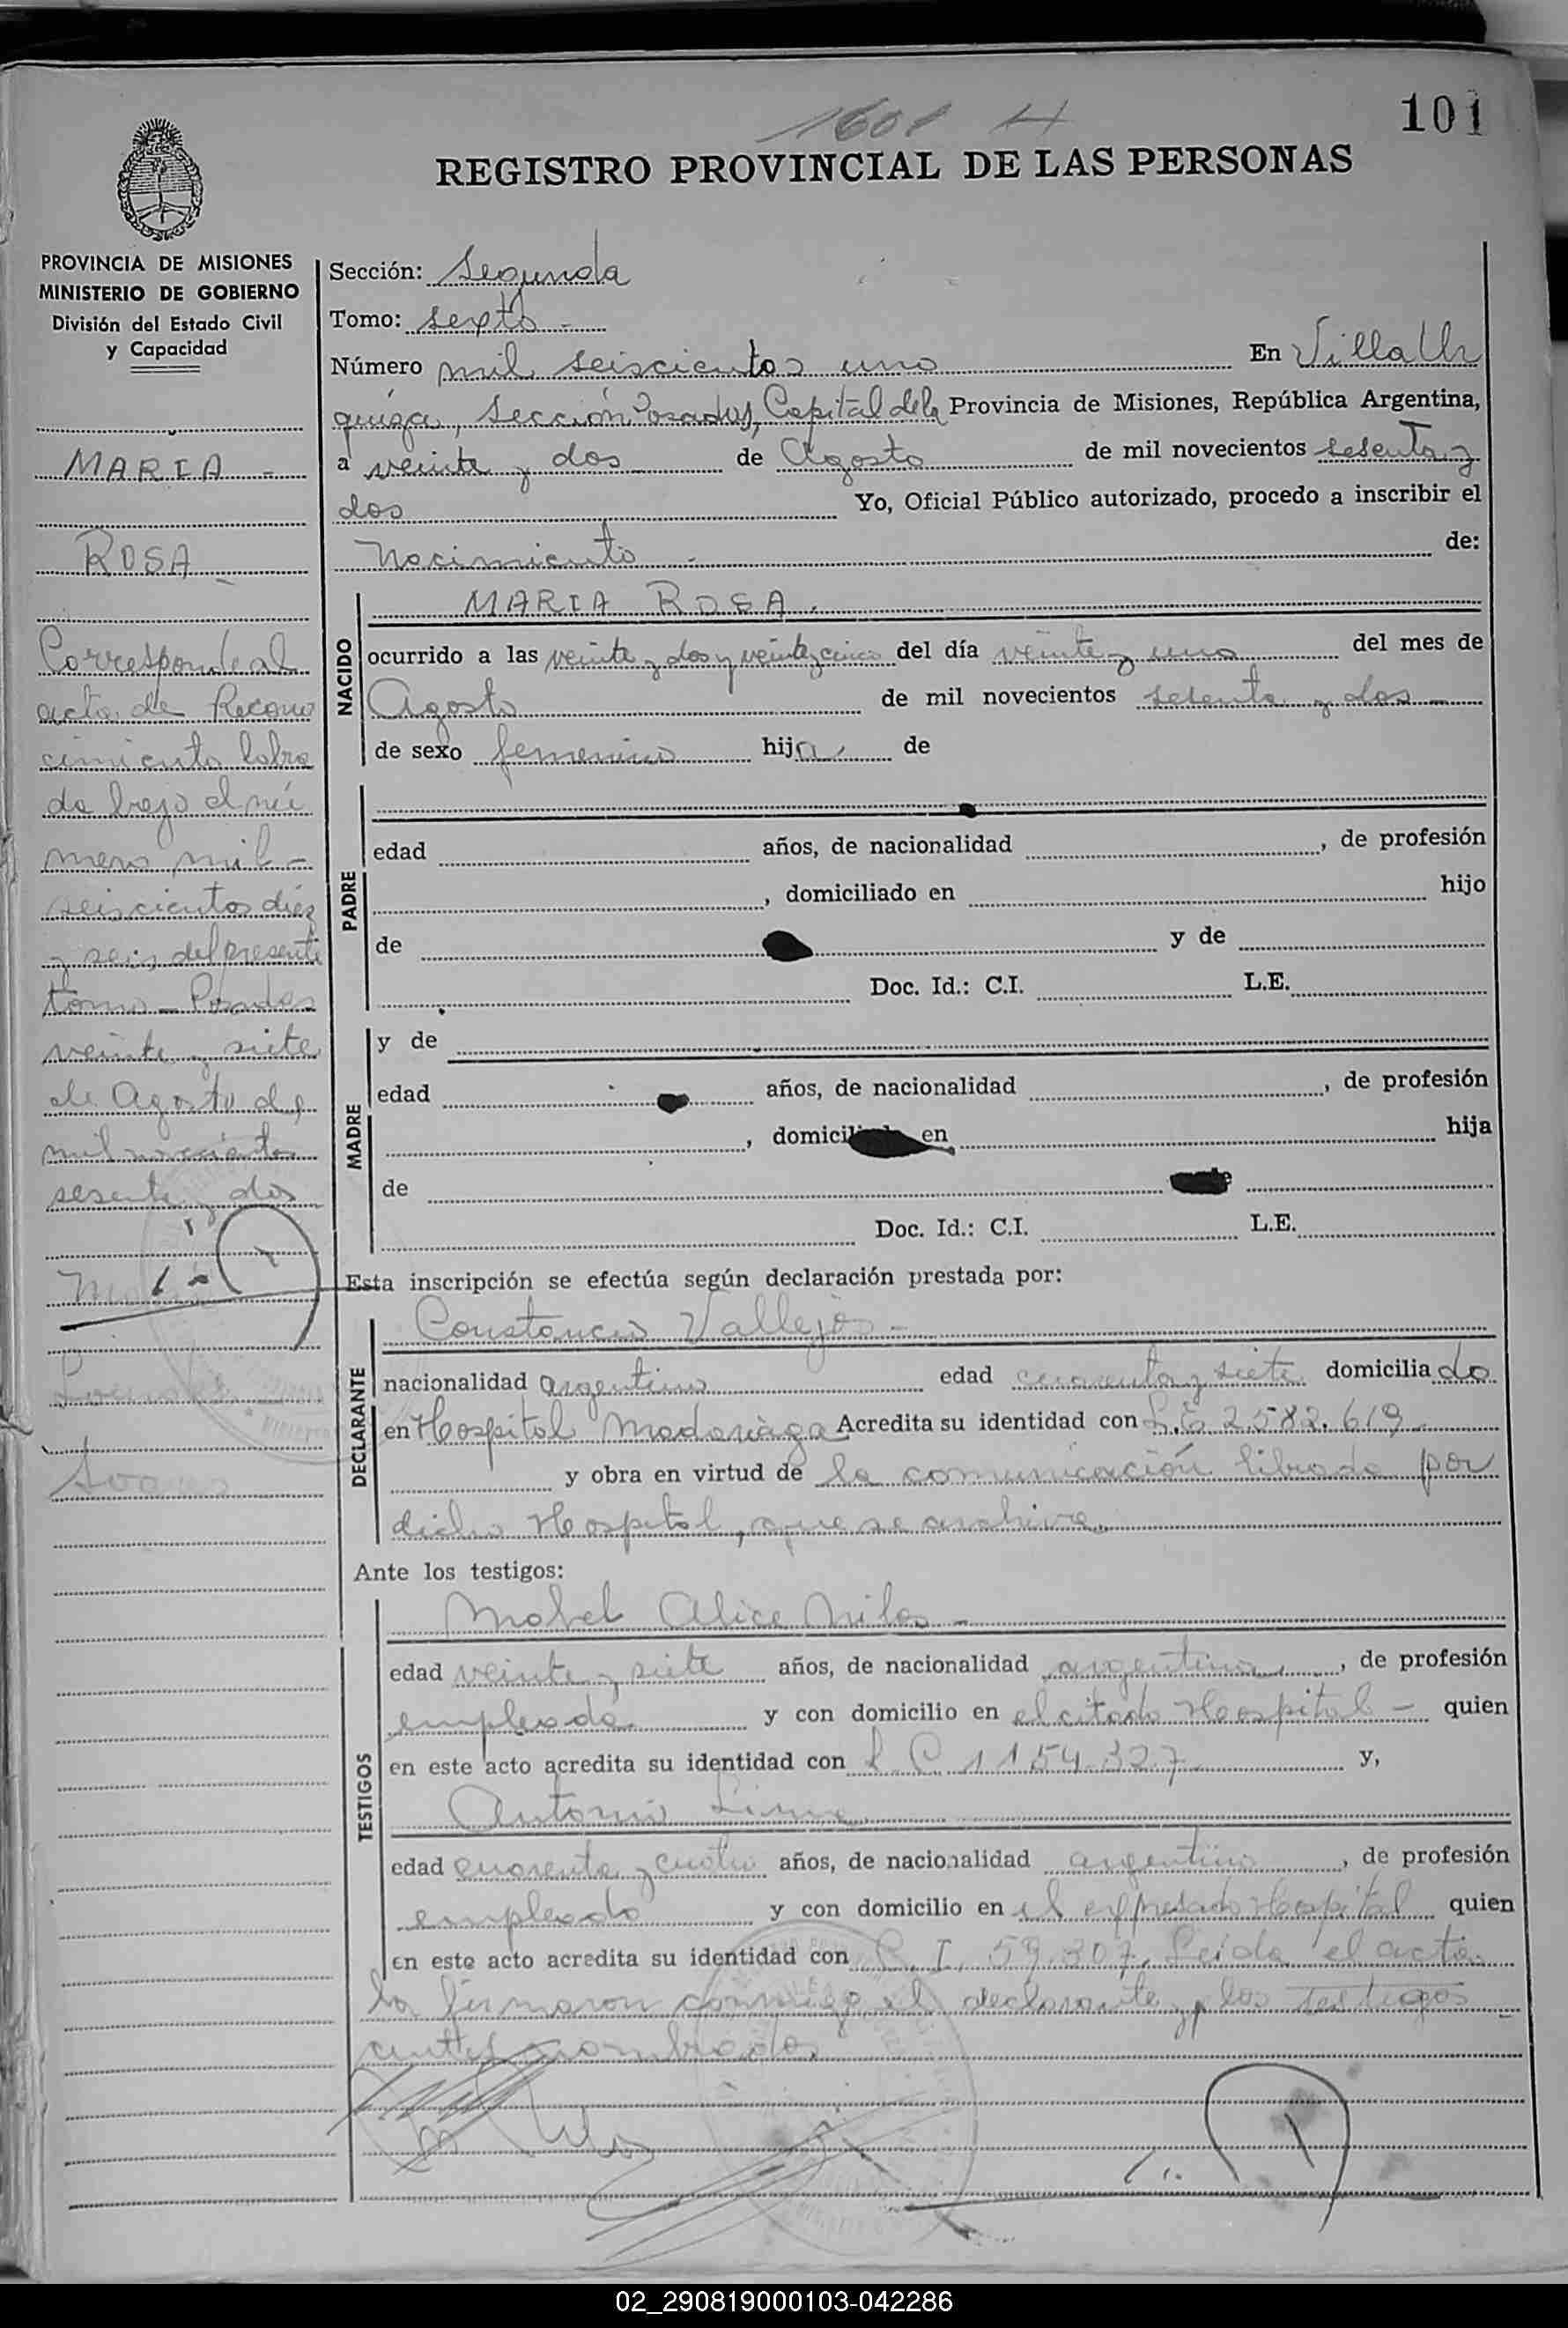 1601 H
101
REGISTRO PROVINCIAL DE LAS PERSONAS
PROVINCIA DE MISIONES
MINISTERIO DE GOBIERNO
División del Estado Civil
y Capacidad
MARIA -
ROSA -
Corresponde al
acta de Recono
cimiento labra
da bajo el nú
mero mil -
seiscientos diez
y seis del presente
tomo - Posadas
veinte y siete
de Agosto de
mil novecientos
sesenta y dos
Sección: Segunda
Tomo: sexto -
Número mil seiscientos uno En Villa Ur
quiza, Sección Posadas, Capital de la Provincia de Misiones, República Argentina,
a veinte y dos de Agosto de mil novecientos sesenta y
dos Yo, Oficial Público autorizado, procedo a inscribir el
Nacimiento - de:
NACIDO
MARIA ROSA.
ocurrido a las veinte y dos y veinte y cinco del día veinte y uno del mes de
Agosto de mil novecientos sesenta y dos -
de sexo femenino hija de
PADRE
edad años, de nacionalidad , de profesión
, domiciliado en hijo
de y de
Doc. Id.: C.I. L.E.
MADRE
y de
edad años, de nacionalidad , de profesión
, domicili en hija
de
Doc. Id.: C.I. L.E.
Esta inscripción se efectúa según declaración prestada por:
DECLARANTE
Constancio Vallejos -
nacionalidad argentino edad cuarenta y siete domiciliado
en Hospital Madariaga Acredita su identidad con L.E 2.582.619.
y obra en virtud de la comunicación librada por
dicho Hospital, que se archiva.
Ante los testigos:
TESTIGOS
Mabel Alice -
edad veinte y siete años, de nacionalidad argentina, de profesión
empleada y con domicilio en el citado Hospital - quien
en este acto acredita su identidad con L.C. 1154.327 y,
Antonio
edad cuarenta y cuatro años, de nacionalidad argentino , de profesión
empleado y con domicilio en el expresado Hospital quien
en este acto acredita su identidad con C.I. 59.307. Leida el acta
la firmaron conmigo el declarante y los testigos
antes nombrados.
02_290819000103-042286